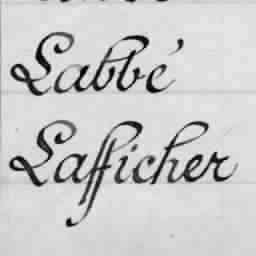 Labbé
Lafficher